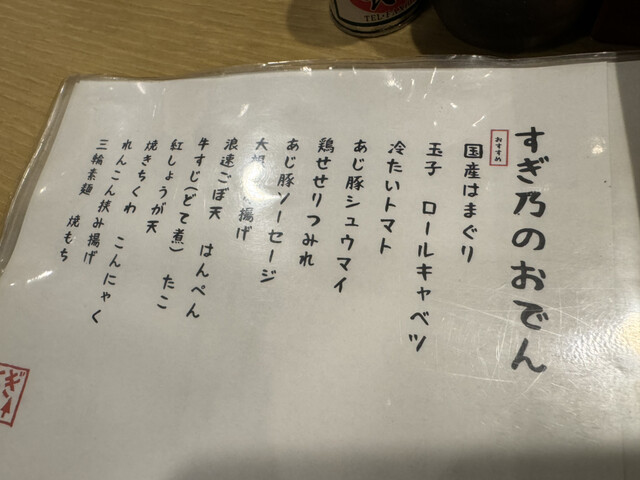 すぎ乃のおでん
おすすめ
国産はまぐり
玉子 ロールキャベツ
冷たいトマト
あじ豚シュウマイ
鶏せせりつみれ
あじ豚ソーセージ
大根 揚げ
浪速ごぼ天 はんぺん
牛すじ(どて煮) たこ
紅しょうが天
焼きちくわ こんにゃく
れんこん挟み揚げ
三輪素麺 焼もち
TEL